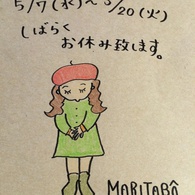 5/7(水)〜5/20(火)
しばらく
お休み致します。
MARITABÔ